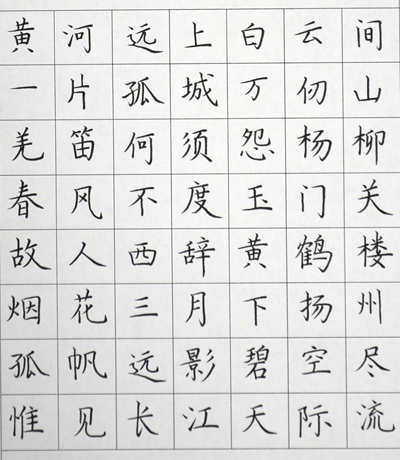 黄河远上白云间
一片孤城万仞山
羌笛何须怨杨柳
春风不度玉门关
故人西辞黄鹤楼
烟花三月下扬州
孤帆远影碧空尽
惟见长江天际流